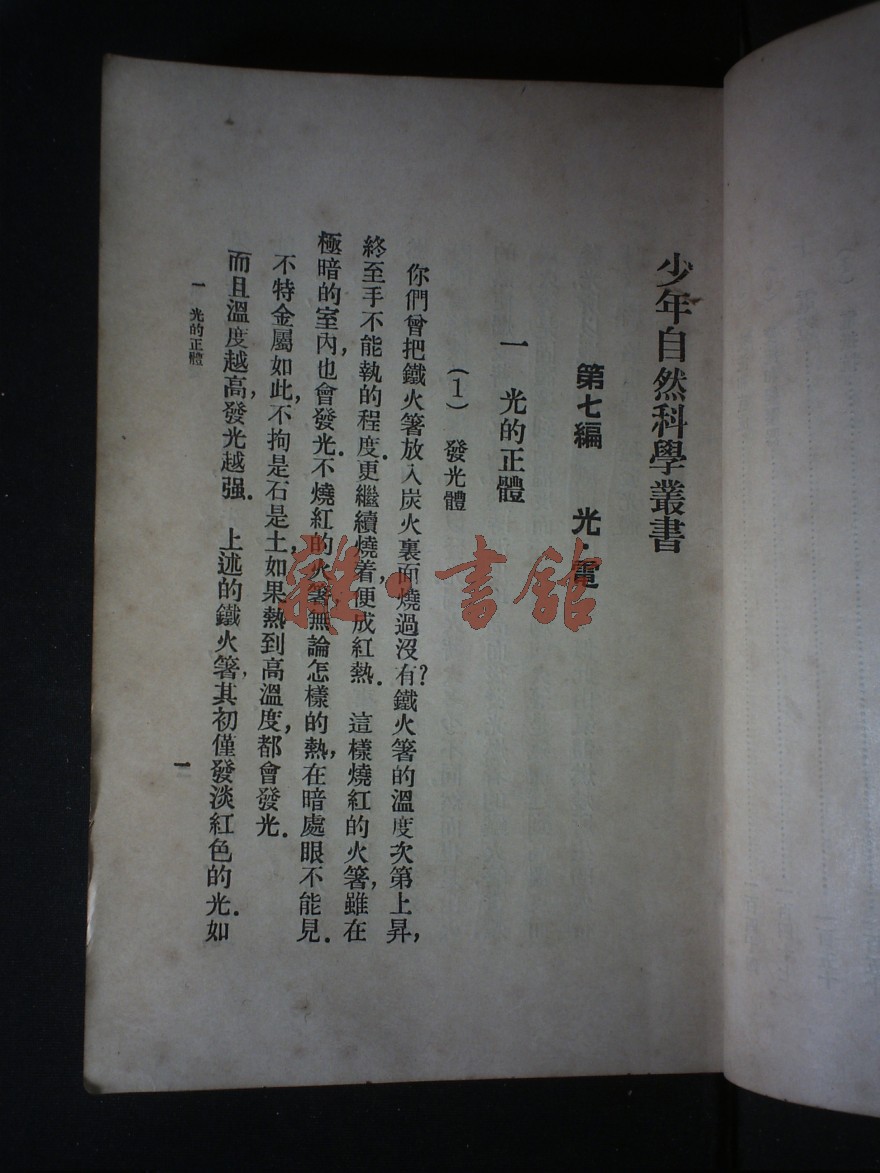 少年自然科學叢書
第七編　光·電
一　光的正體
(1)　發光體
你們曾把鐵火箸放入炭火裏面燒過沒有?鐵火箸的溫度次第上昇,
終至手不能執的程度.更繼續燒着,便成紅熱.　這樣燒紅的火箸,雖在
極暗的室內,也會發光.不燒紅的火箸,無論怎樣的熱,在暗處眼不能見.
不特金屬如此,不拘是石是土,如果熱到高溫度,都會發光.
而且溫度越高,發光越强.　上述的鐵火箸,其初僅發淡紅色的光.如
一　光的正體
一
雜·書館